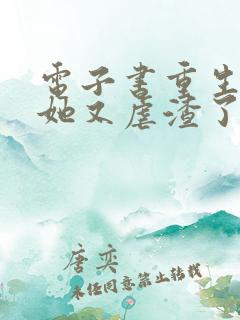 電子書重生
她又虐渣了
唐奕
未任同意禁止转载